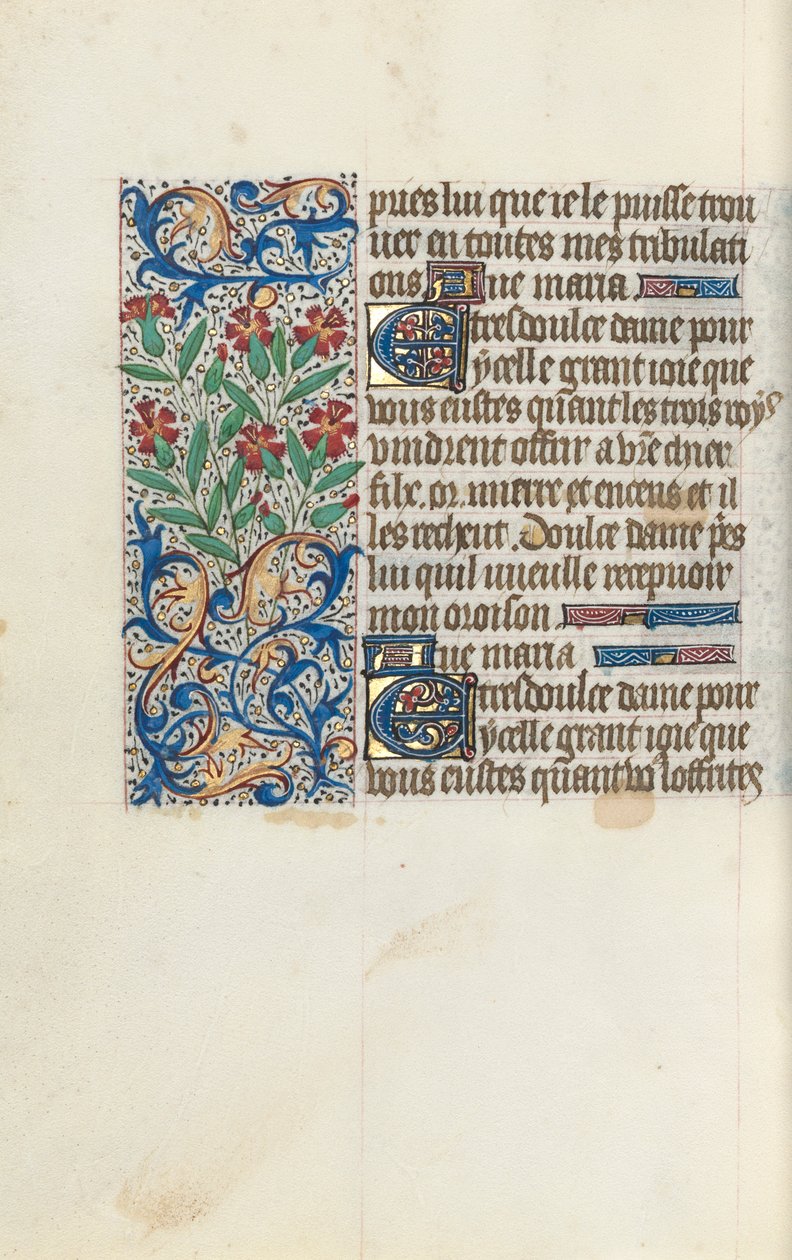 pries lui que ie le puisse trou
uer en toutes mes tribulati
ons Aue maria
E tresdoulce dame pour
ycelle grant ioie que
vous eustes quant les trois roys
vindrent offrir a vr̄e chier
filx. or. mierre et encens et il
les rechent. Doulce dame p̄es
lui quil uueille recepuoir
mon oroison
Aue maria
E tresdoulce dame pour
ycelle grant ioie que
vous eustes quant vo9 loffrites